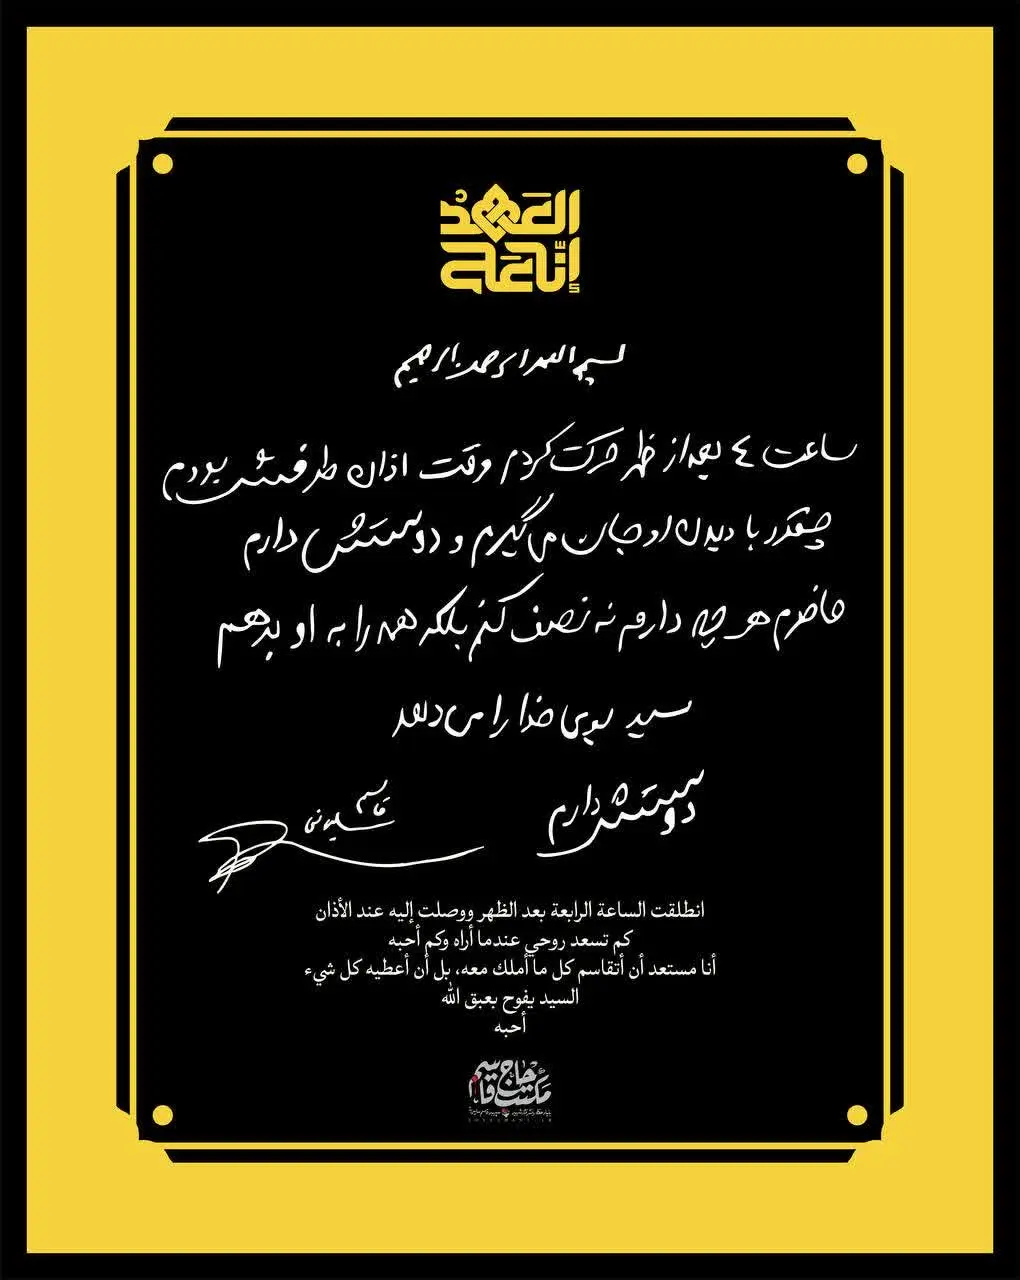 إنا على
العهد
بسم الله الرحمن الرحیم
ساعت ٤ بعد از ظهر حرکت کردم وقت اذان طرفش بودم
چقدر با دیدن او جان می گیرم و دوستش دارم
حاضرم هر چه دارم نه نصف کنم بلکه همه را به او بدهم
سید بوی خدا را می دهد
دوستش دارم
قاسم سلیمانی
انطلقت الساعة الرابعة بعد الظهر ووصلت إليه عند الأذان
كم تسعد روحي عندما أراه وكم أحبه
أنا مستعد أن أتقاسم كل ما أملك معه، بل أن أعطيه كل شيء
السيد يفوح بعبق الله
أحبه
مکتب حاج قاسم